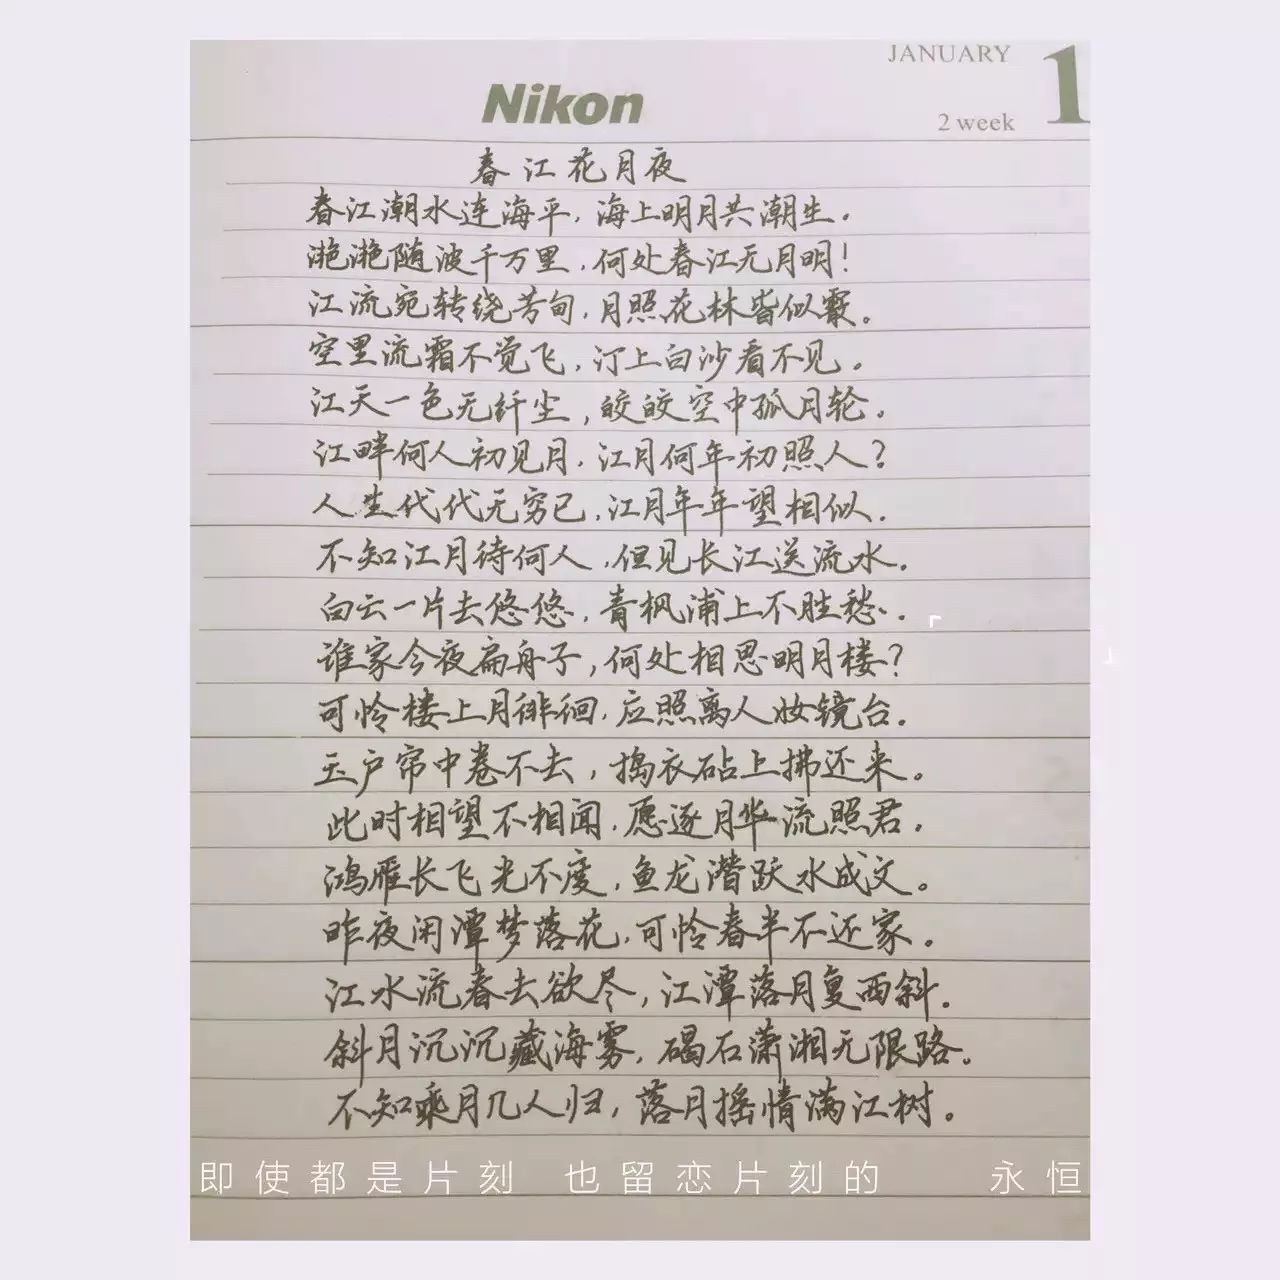 JANUARY 1
Nikon
2 week
春江花月夜
春江潮水连海平,海上明月共潮生。
滟滟随波千万里,何处春江无月明!
江流宛转绕芳甸,月照花林皆似霰。
空里流霜不觉飞,汀上白沙看不见。
江天一色无纤尘,皎皎空中孤月轮。
江畔何人初见月,江月何年初照人?
人生代代无穷已,江月年年望相似。
不知江月待何人,但见长江送流水。
白云一片去悠悠,青枫浦上不胜愁。
谁家今夜扁舟子,何处相思明月楼?
可怜楼上月徘徊,应照离人妆镜台。
玉户帘中卷不去,捣衣砧上拂还来。
此时相望不相闻,愿逐月华流照君。
鸿雁长飞光不度,鱼龙潜跃水成文。
昨夜闲潭梦落花,可怜春半不还家。
江水流春去欲尽,江潭落月复西斜。
斜月沉沉藏海雾,碣石潇湘无限路。
不知乘月几人归,落月摇情满江树。
即使都是片刻 也留恋片刻的 永恒